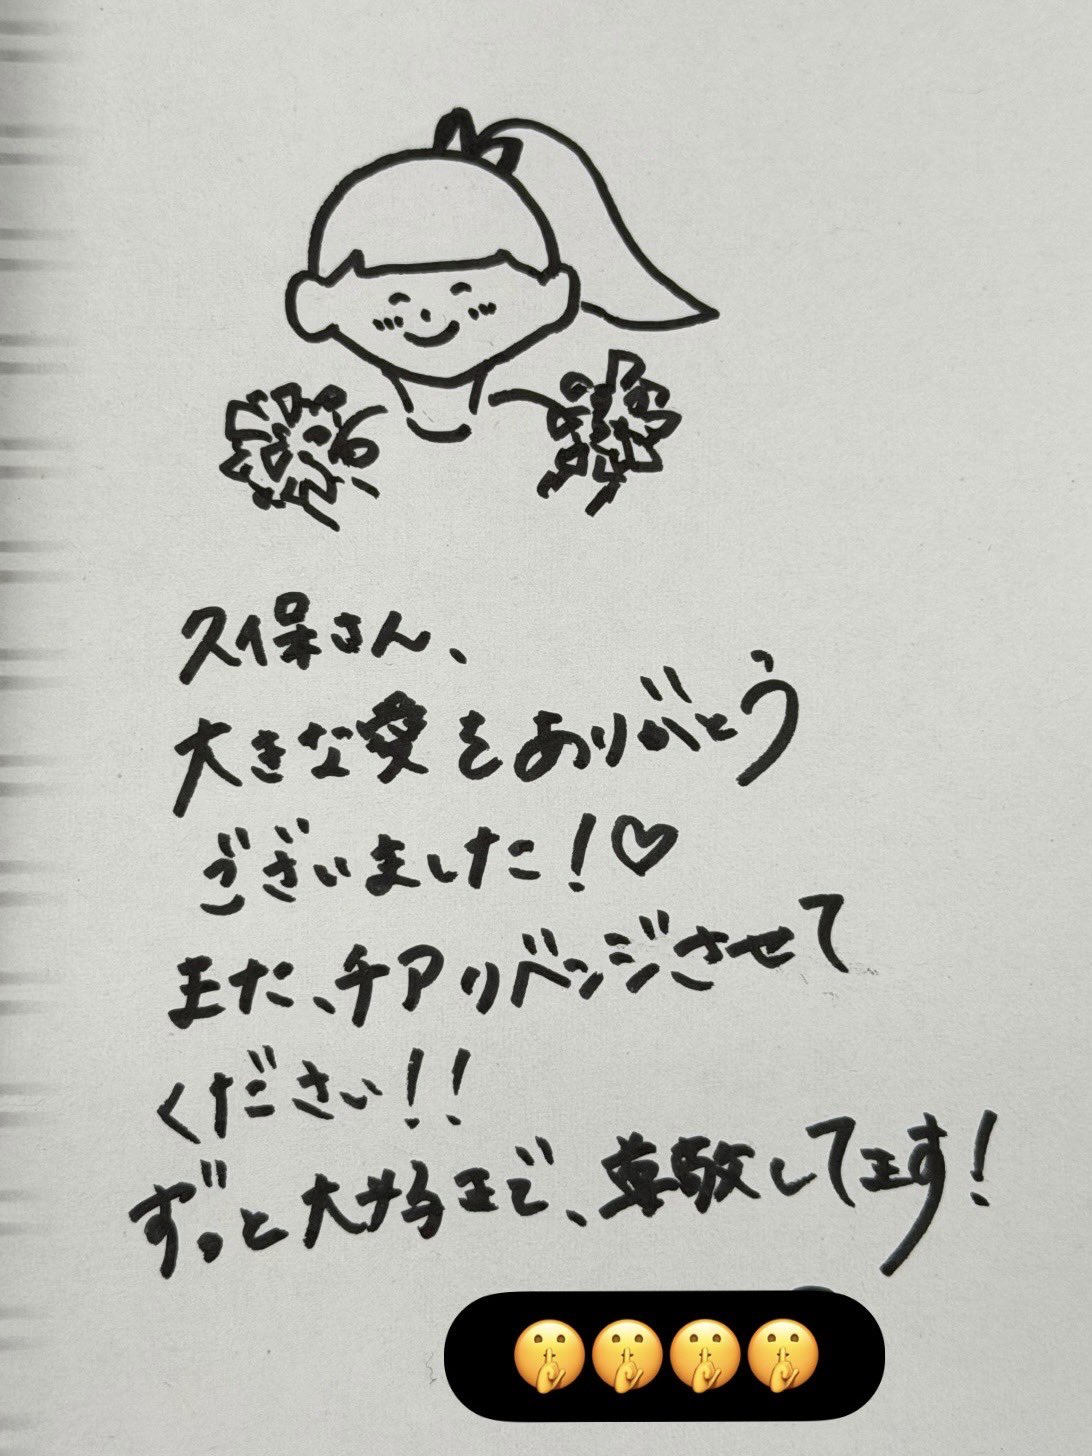 久保さん、
大きな愛をありがとう
ございました！♡
また、チアリベンジさせて
ください！！
ずっと大好きで、尊敬してます！
🤫🤫🤫🤫